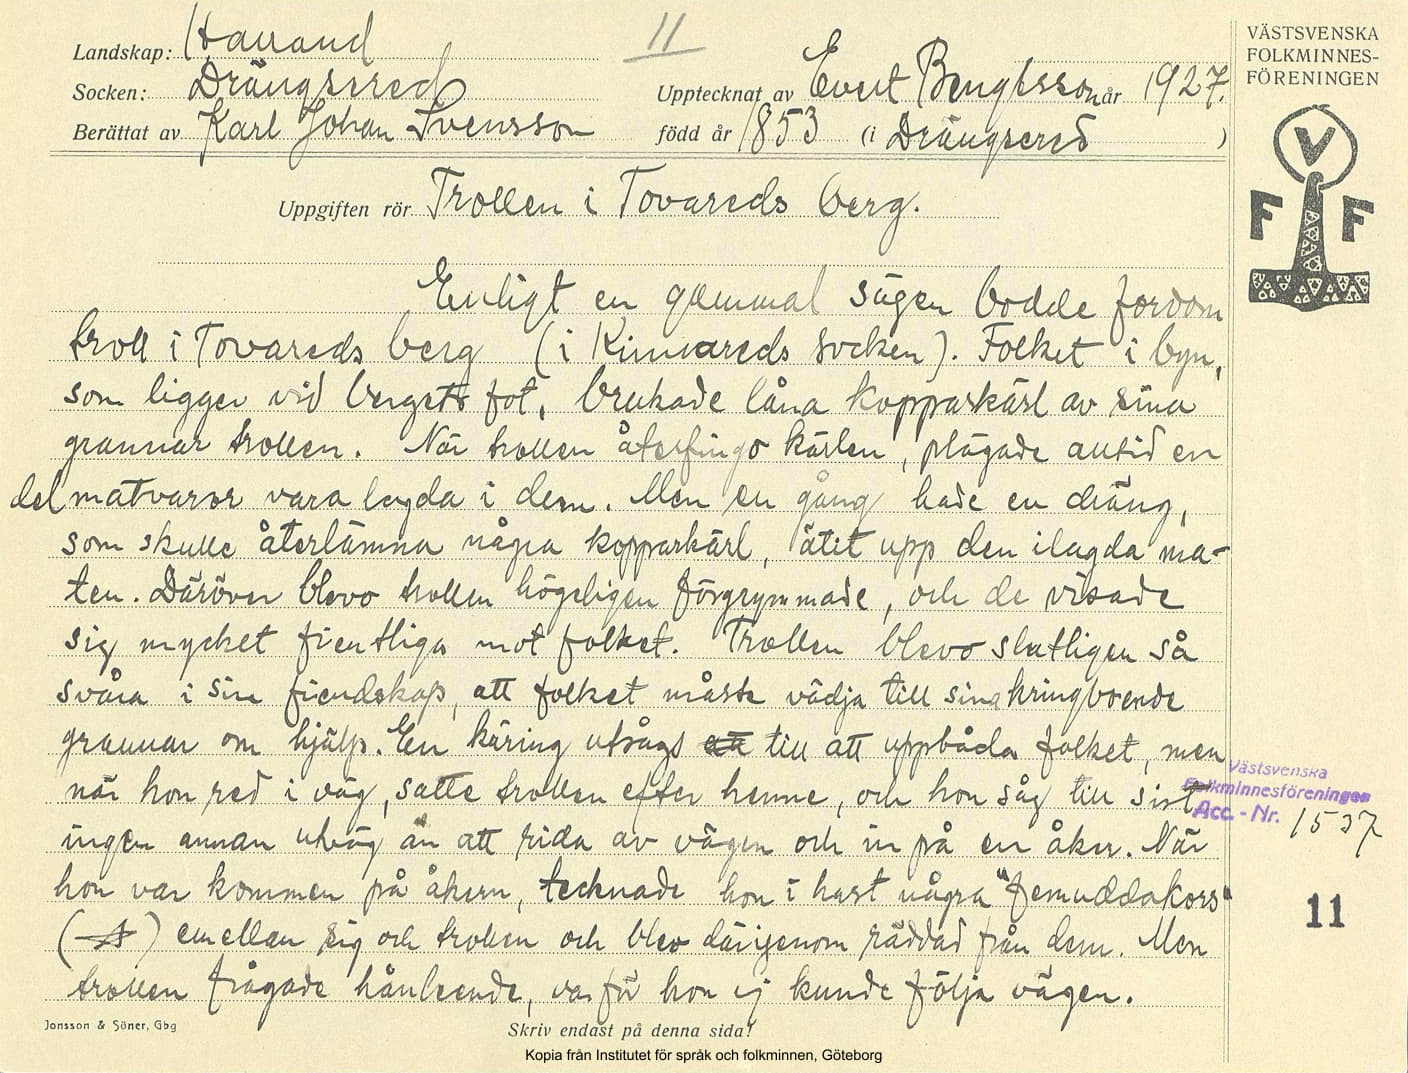 11
Landskap: Halland
Socken: Drängsered
Upptecknat av Evert Bengtsson år 1927.
Berättat av Karl Johan Svensson född år 1853 (i Drängsered)
VÄSTSVENSKA
FOLKMINNES-
FÖRENINGEN
V
F F
Uppgiften rör Trollen i Tovareds berg.
Enligt en gammal sägen bodde fordom
troll i Tovareds berg (i Kinnareds socken). Folket i byn,
som ligger vid bergets fot, brukade låna kopparkärl av sina
grannar trollen. När trollen återfingo kärlen, plägade alltid en
del matvaror vara lagda i dem. Men en gång hade en dräng,
som skulle återlämna några kopparkärl, ätit upp den ilagda ma-
ten. Däröver blevo trollen högeligen förgrymmade, och de visade
sig mycket fientliga mot folket. Trollen blevo slutligen så
svåra i sin fiendskap, att folket måste vädja till sina kringboende
grannar om hjälp. En käring utsågs till att uppbåda folket, men
när hon red i väg, satte trollen efter henne, och hon såg till sist
ingen annan utväg än att rida av vägen och in på en åker. När
hon var kommen på åkern, tecknade hon i hast några "femuddakors"
( ) emellan sig och trollen och blev därigenom räddad från dem. Men
trollen frågade hånleende, varför hon ej kunde följa vägen.
Västsvenska
Folkminnesföreningen
Acc. - Nr. 1537
11
Jonsson & Söner, Gbg
Skriv endast på denna sida!
Kopia från Institutet för språk och folkminnen, Göteborg